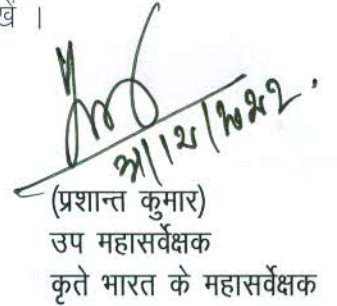 खें ।
(प्रशान्त कुमार)
उप महासर्वेक्षक
कृते भारत के महासर्वेक्षक